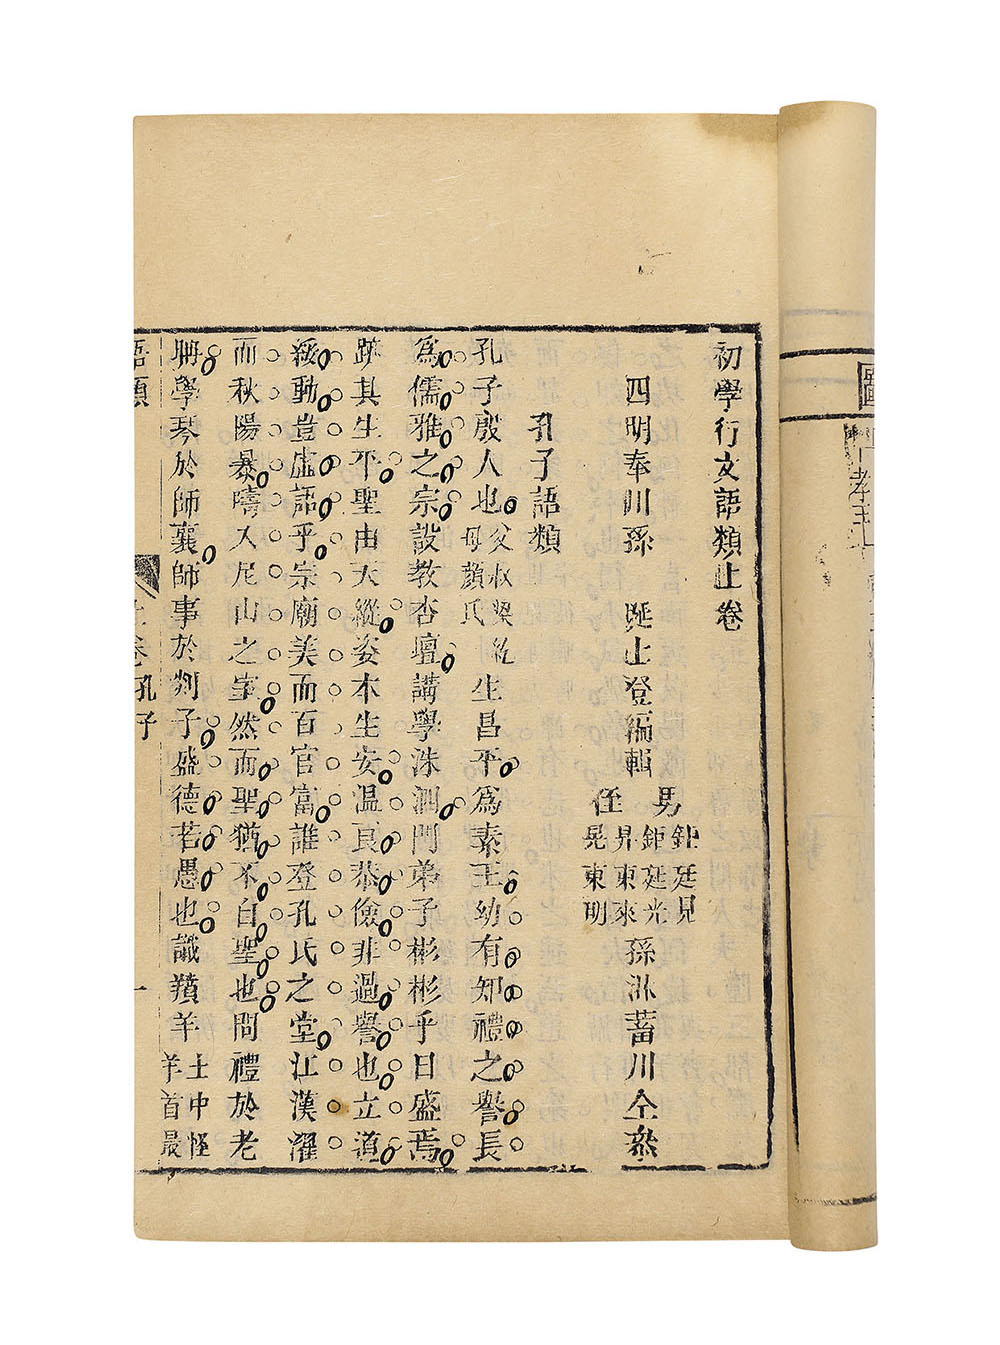 初學行文語類上卷
四明奉川孫 𡊠上登編輯 男 鉅廷見 鉅廷光 侄 昇東來 晃東明 孫 汖蓄川仝叅
孔子語類
孔子殷人也父叔梁紇母顏氏生昌平爲素王幼有知禮之譽長
爲儒雅之宗設教杏壇講學洙泗門弟子彬彬乎日盛焉
跡其生平聖由天縱姿本生安温良恭儉非過譽也立道
綏動豈虛語乎宗廟美而百官富誰登孔氏之堂江漢濯
而秋陽暴疇入尼山之室然而聖猶不自聖也問禮於老
聃學琴於師襄師事於剡子盛德若愚也識羵羊土中怪羊首最
語類 上卷孔子 一